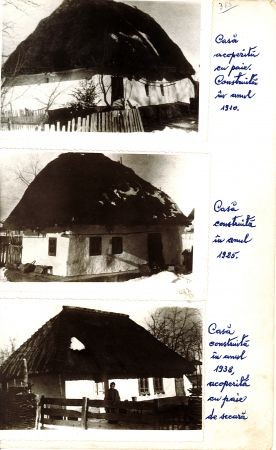 Casă
acoperită
cu paie.
Construită
în anul
1910.
Casă
construită
în anul
1925.
Casă
construită
în anul
1938,
acoperită
cu paie
de secară